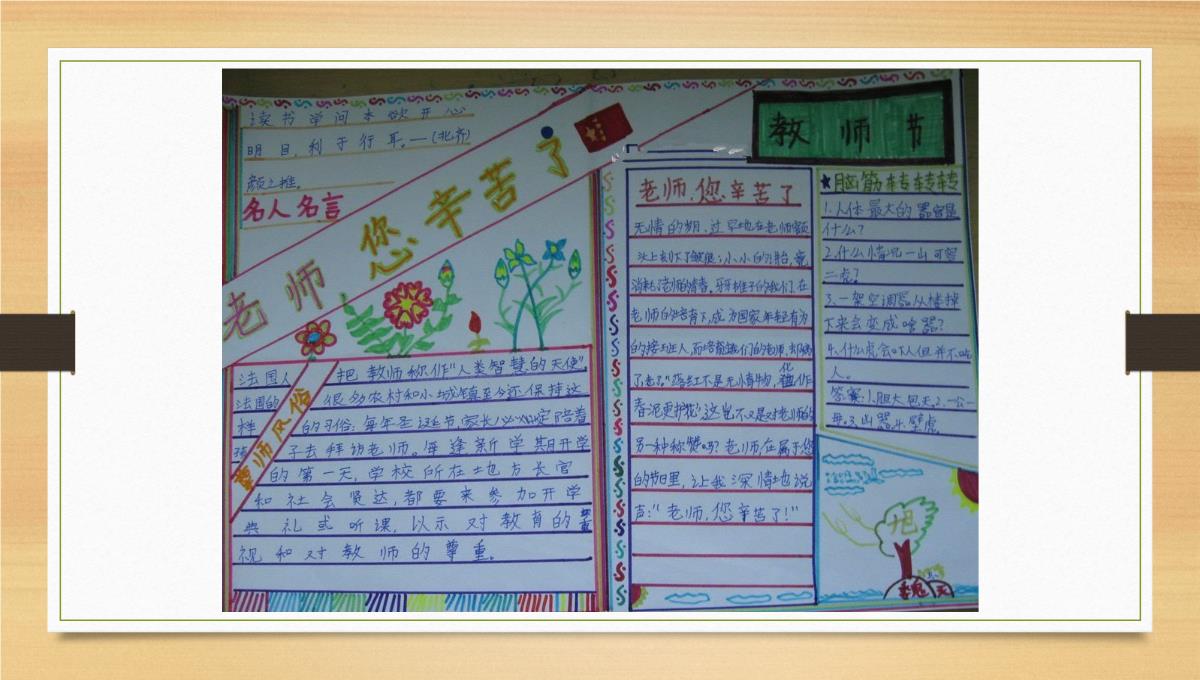 读书学问本欲开心
明目,利于行耳。—(北齐)
颜之推。
名人名言
老师 您辛苦了
法国人 把教师称作“人类智慧的天使”。
法国的 很多农村和小城镇至今还保持这
样 的习俗:每年圣诞节,家长 陪着
孩 子去拜访老师。每逢新学期开学
的第一天,学校所在地方长官
和社会贤达,都要来参加开学
典礼或听课,以示对教育的重
视和对教师的尊重。
尊师风俗
教师节
老师,您辛苦了
无情的 老师额
头上刻下了皱纹;小小的 竟
消耗 老师的青春。牙牙 的我们,在
老师的培育下,成为国家年轻有为
的接班人,而培育 我们的老师,却
了老。“落红不是无情物,化作
春泥更护花”这岂不又是对老师的
另一种称赞吗?老师,在属于您
的节日里,让我深情地说
声:“老师,您辛苦了!”
★脑筋转转转
1.人体最大的器官是
什么?
2.什么情况一山可容
二虎?
3.一架空调器从楼掉
下来会变成啥器?
4.什么虎会吓人但并不吃
人。
答案:1.胆大包天2.一公一
母.3.凶器.4.壁虎.
旭
魏